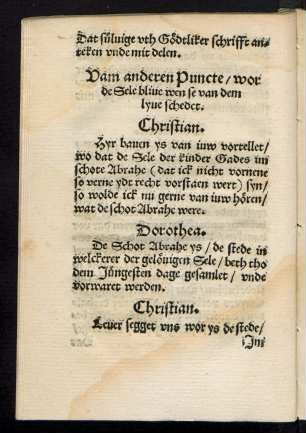 Dat sůluige vth Gödtliker schrifft an-
teken vnde mit delen.
Vam anderen Puncte / wor
de Sele bliue wen se van dem
lyue schedet.
Christian.
Hyr bauen ys van iuw vortellet /
wo dat de Sele der kinder Gades im
schote Abrahe (dat ick nicht vornene
so verne ydt recht vorstaen wert) syn /
so wolde ick nu gerne van iuw hören /
wat de schot Abrahe were.
Dorothea.
De Schot Abrahe ys / de stede in
welckerer der gelöuigen Sele / beth tho
dem Jüngesten dage gesamlet / vnde
vorwaret werden.
Christian.
Leuer segget vns wor ys de stede /
Jni